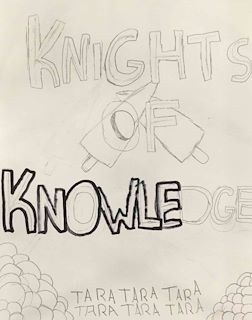 KNIGHTS
OF
KNOWLEDGE
TARA TARA TARA
TARA TARA TARA